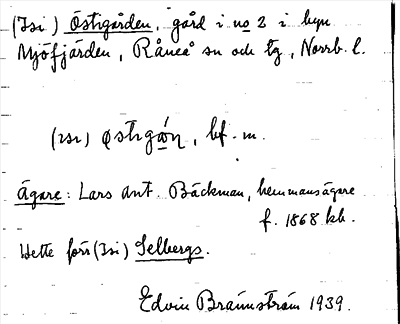 (Isi) Östigården, gård i no 2 i byn
Mjöfjärden, Råneå sn och tg, Norrb. l.
(ısı) østıgǻn, bf. m.
Ägare: Lars Ant. Bäckman, hemmansägare
f. 1868 kb.
Hette förr (Isi) Selbergs.
Edvin Brännström 1939.